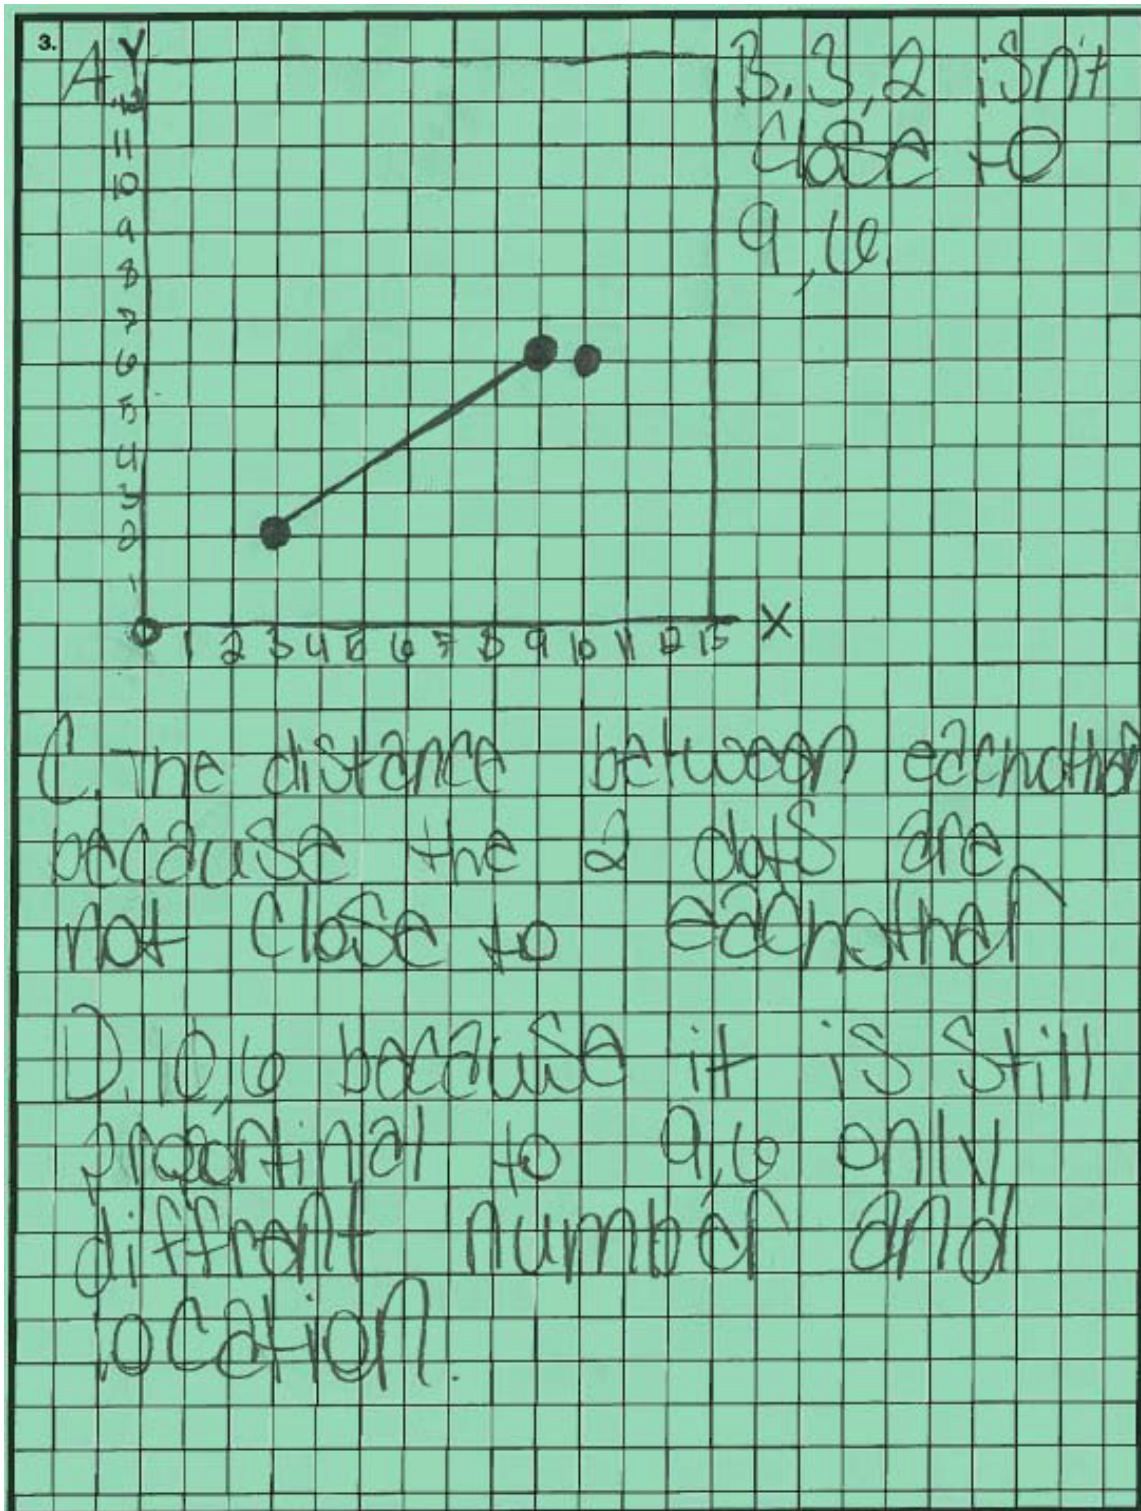 3.
A. Y
B. 3,2 isn't
close to
9,6.
12
11
10
9
8
7
6
5
4
3
2
1
0 1 2 3 4 5 6 7 8 9 10 11 12 13 X
C. The distance between eachother
because the 2 dots are
not close to eachother
D. 10,6 because it is still
proportinal to 9,6 only
diffrent number and
location.